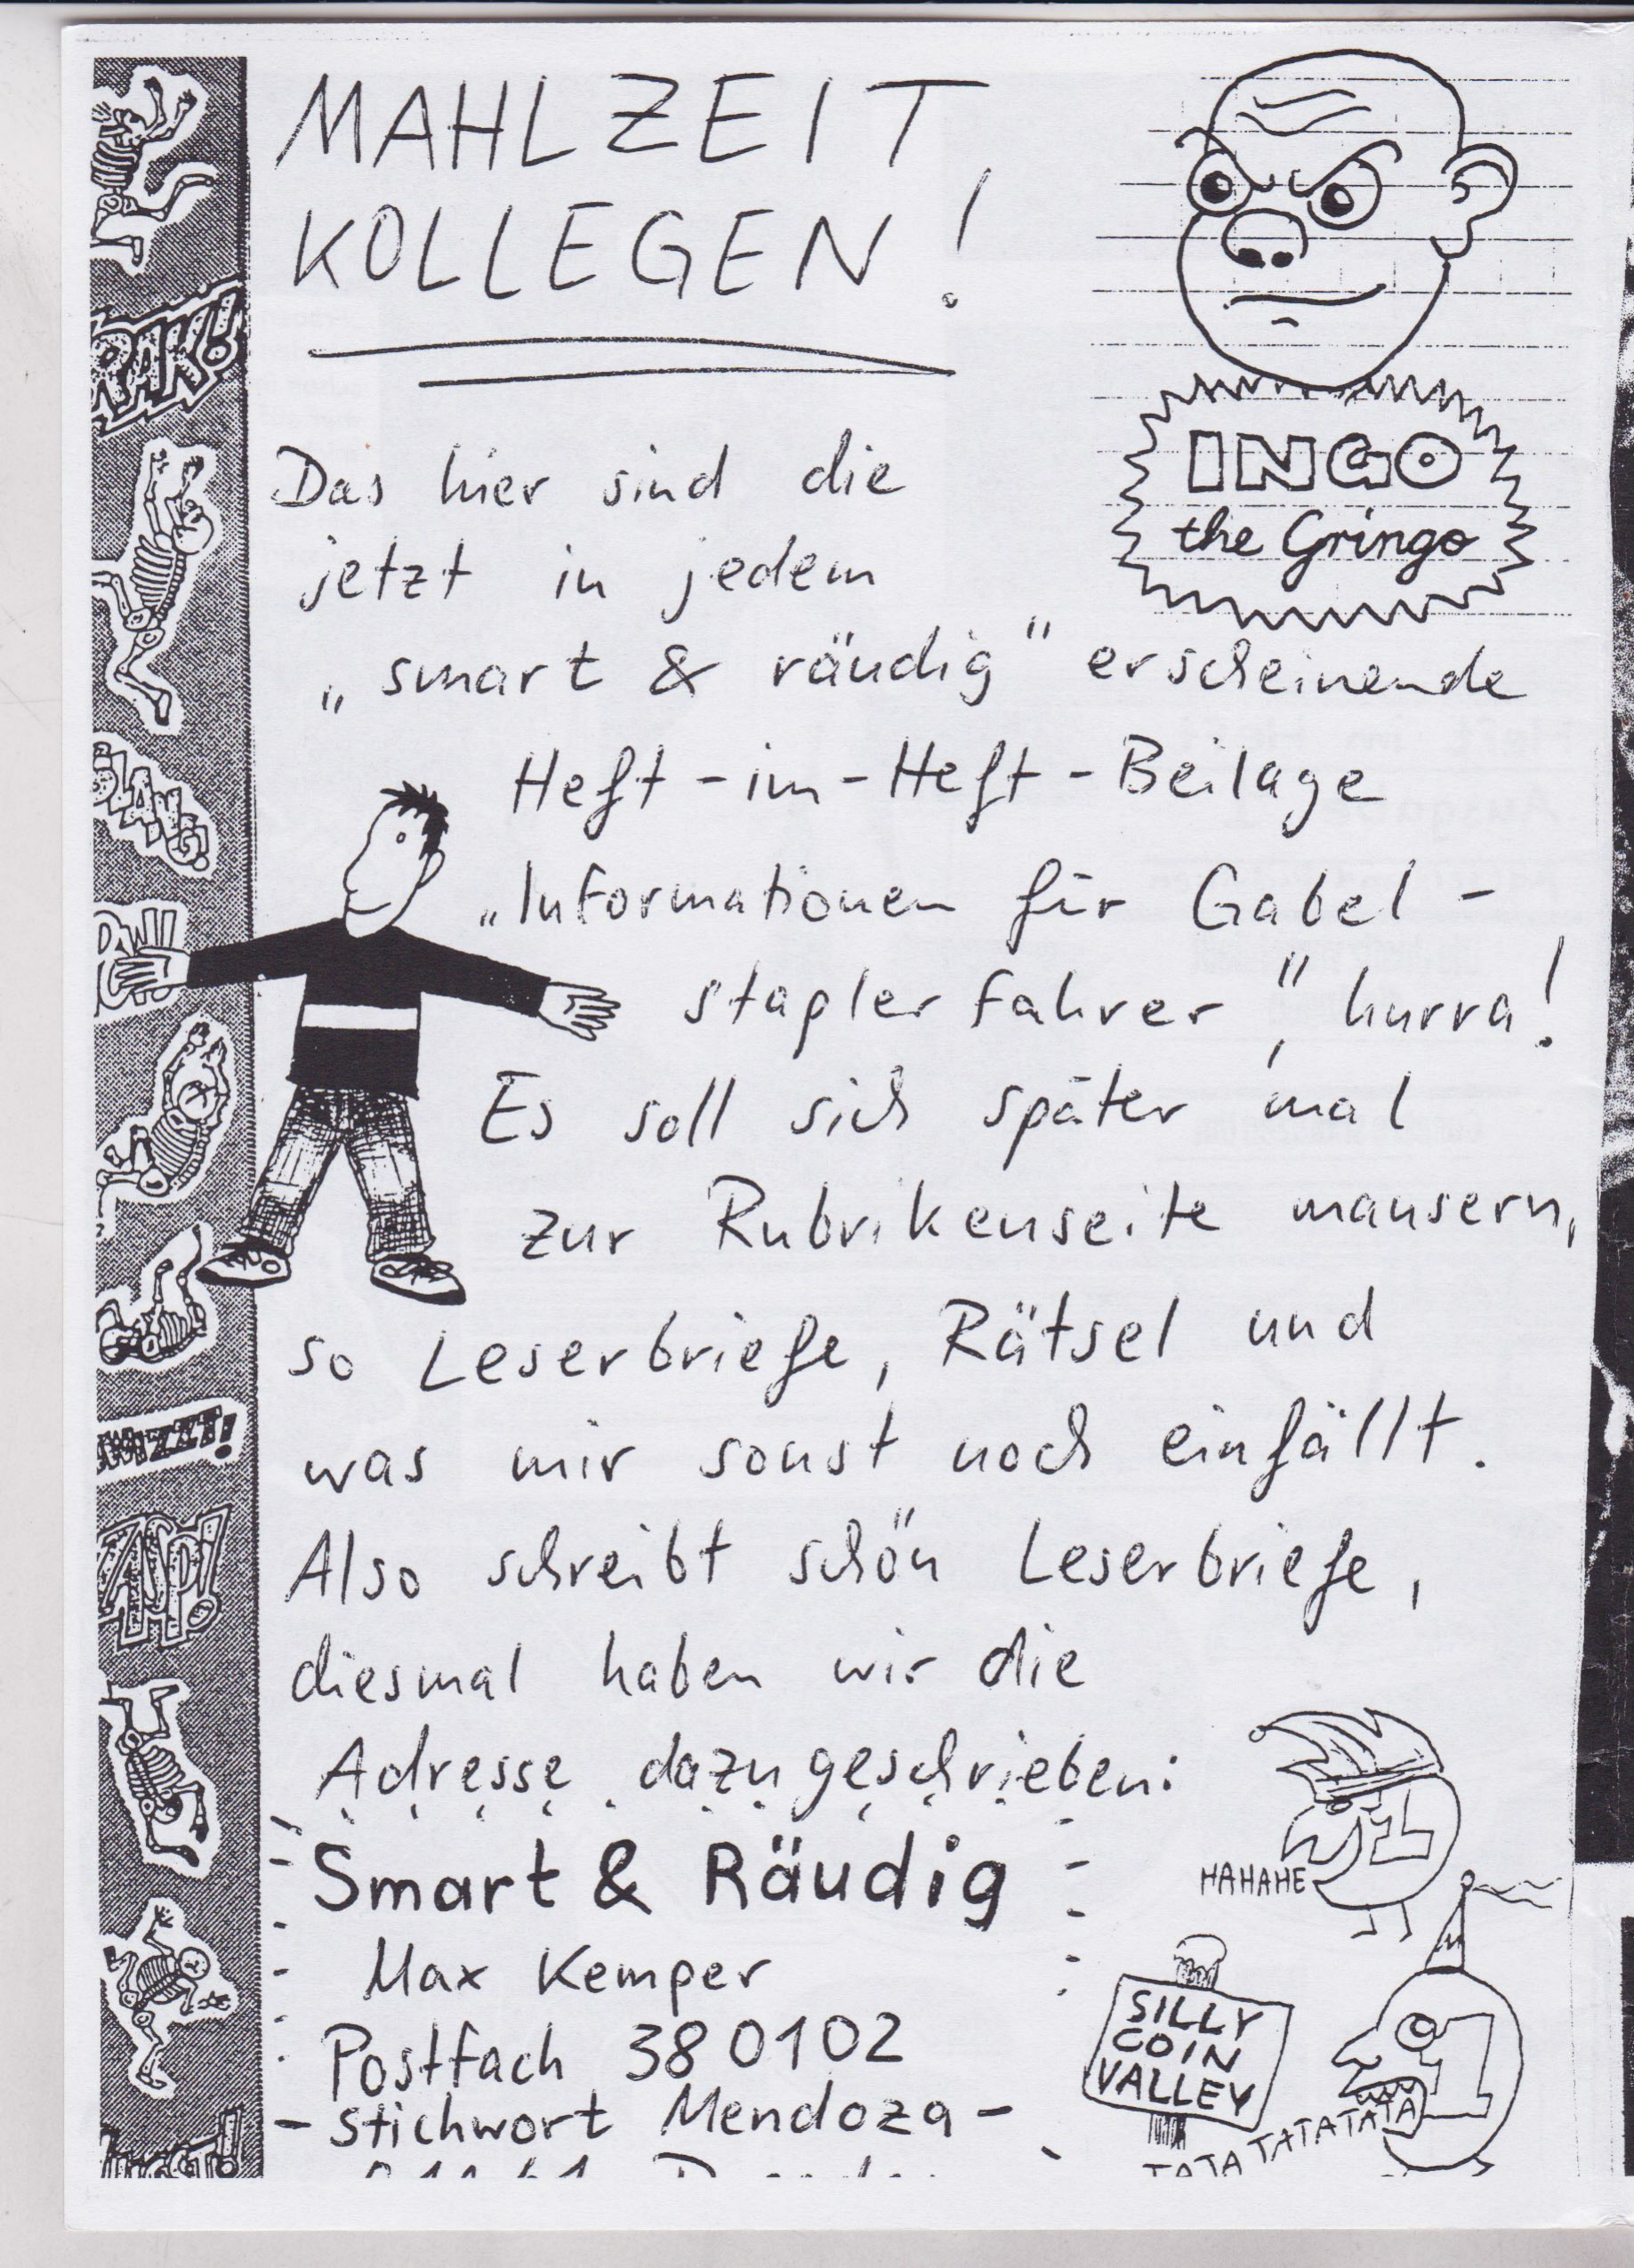 MAHLZEIT
KOLLEGEN!
INGO
the Gringo
Das hier sind die
jetzt in jedem
„smart & räudig" erscheinende
Heft-im-Heft-Beilage
„Informationen für Gabel-
staplerfahrer", hurra!
Es soll sich später mal
zur Rubrikenseite mausern,
so Leserbriefe, Rätsel und
was mir sonst noch einfällt.
Also schreibt schön Leserbriefe,
diesmal haben wir die
Adresse dazugeschrieben:
Smart & Räudig
Max Kemper
Postfach 380102
-stichwort Mendoza-
HAHAHE
SILLY
COIN
VALLEY
TATATATATATATA
RAK!
WIZZT!
ZASP!